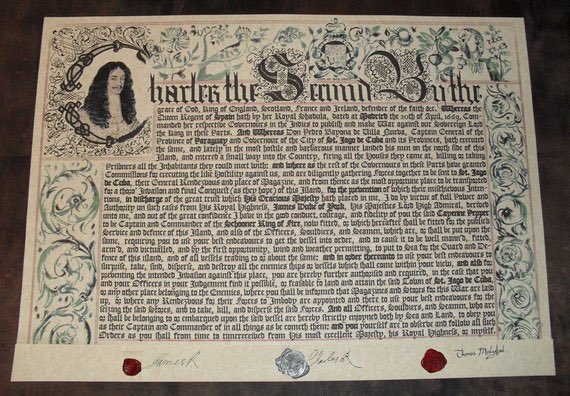 Charles the Second By the
grace of God, King of England, Scotland, France and Ireland, defender of the faith &c. Whereas the
Queen Regent of Spain hath by her Royal Shadula, dated at Madrid the 20th of April, 1669, Com-
manded her respective Governours in the Indies to publish and make War against our Sovereign Lord
the King in these Parts. And Whereas Don Pedro Bayona de Villa Nueva, Captain General of the
Province of Paraguay and Governour of the City of St. Jago de Cuba and its Provinces, hath executed
the same, and lately in the most hostile and barbarous manner landed his men on the north side of this
Island, and entered a small way into the Country, firing all the Houses they came at, killing or taking
Prisoners all the Inhabitants they could meet with; and where as the rest of the Governours in these Parts have granted
Commissions for executing the like Hostility against us, and are diligently gathering Forces together to be sent to St. Jago
de Cuba, their General Rendezvous and place of Magazine, and from thence as the most opportune place to be transported
for a thoro' Invasion and final Conquest (as they hope) of this Island, for the prevention of which their mischievous Inten-
tions, in discharge of the great trust which His Gracious Majesty hath placed in me, I do by virtue of full Power and
Authority in such cases from His Royal Highness, James Duke of York, His Majesties Lord High Admiral, derived
unto me, and out of the great confidence I have in the good conduct, courage, and fidelity of you the said Cayenne Pepper
to be Captain and Commander of the Sethooner King of Fire, now fitted, or which hereafter shall be fitted for the publick
Service and defence of this Island, and also of the Officers, Souldiers, and Seamen, which are, or shall be put upon the
same, requiring you to use your best endeavours to get the vessel into order, and to cause it to be well man'd, fitted,
arm'd, and victualled, and by the first opportunity, wind and weather permitting, to put to Sea for the Guard and De-
fence of this Island, and of all vessels trading to or about the same; and in order thereunto to use your best endeavours to
surprize, take, find, disperse, and destroy all the enemies ships or vessels which shall come within your view, and also for
preventing the intended Invasion against this place, you are hereby further authorised and required, in the case that you
and your Officers in your Judgement find it possible, or feasable to land and attain the said Town of St. Jago de Cuba,
or any other place belonging to the Enemies, where you shall be informed that Magazines and Stores for this War are laid
up, or where any Rendezvous for their Forces to Imbody are appointed and there to use your best endeavours for the
seizing the said Stores, and to take, kill, and disperse the said Forces. And all Officers, Souldiers, and Seamen, which are
or shall be belonging to or embarqued upon the said vessel are hereby strictly enjoyned both by Sea and Land, to obey you
as their Captain and Commander of in all things as be cometh them; and you yourself are to observe and follow all such
Orders as you shall from time to timereceived from His most excellent Majesty, his Royal Highness, or myself.
James R Charles R Thomas